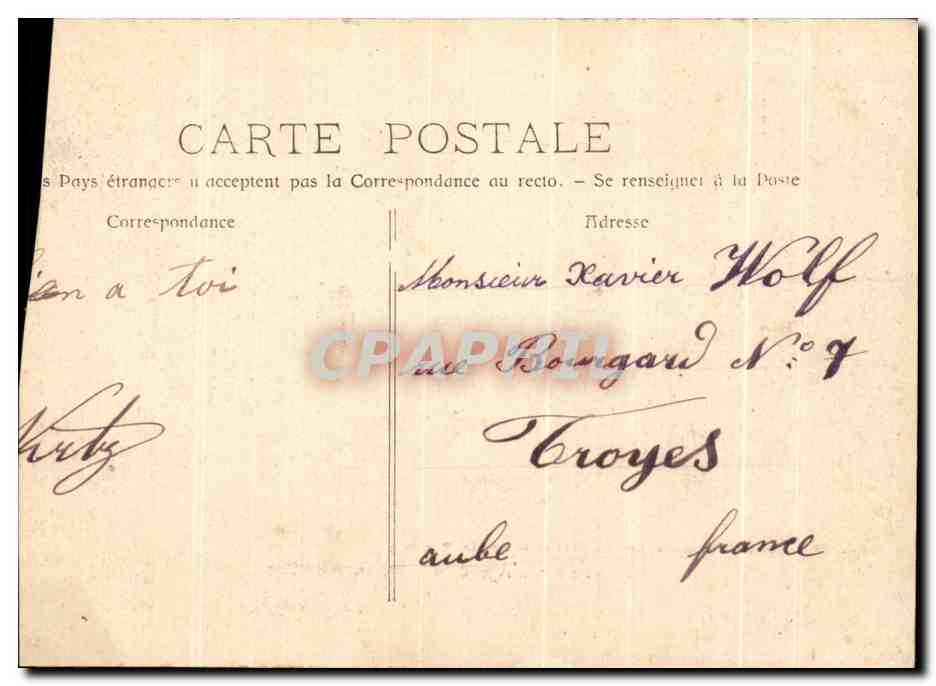 CARTE POSTALE
s Pays étrangers n acceptent pas la Correspondance au recto. – Se renseigner à la Poste
Correspondance
Adresse
ien a toi
Monsieur Xavier Wolf
rue Bourgard N° 7
Troyes
aube france
CPAPHIL